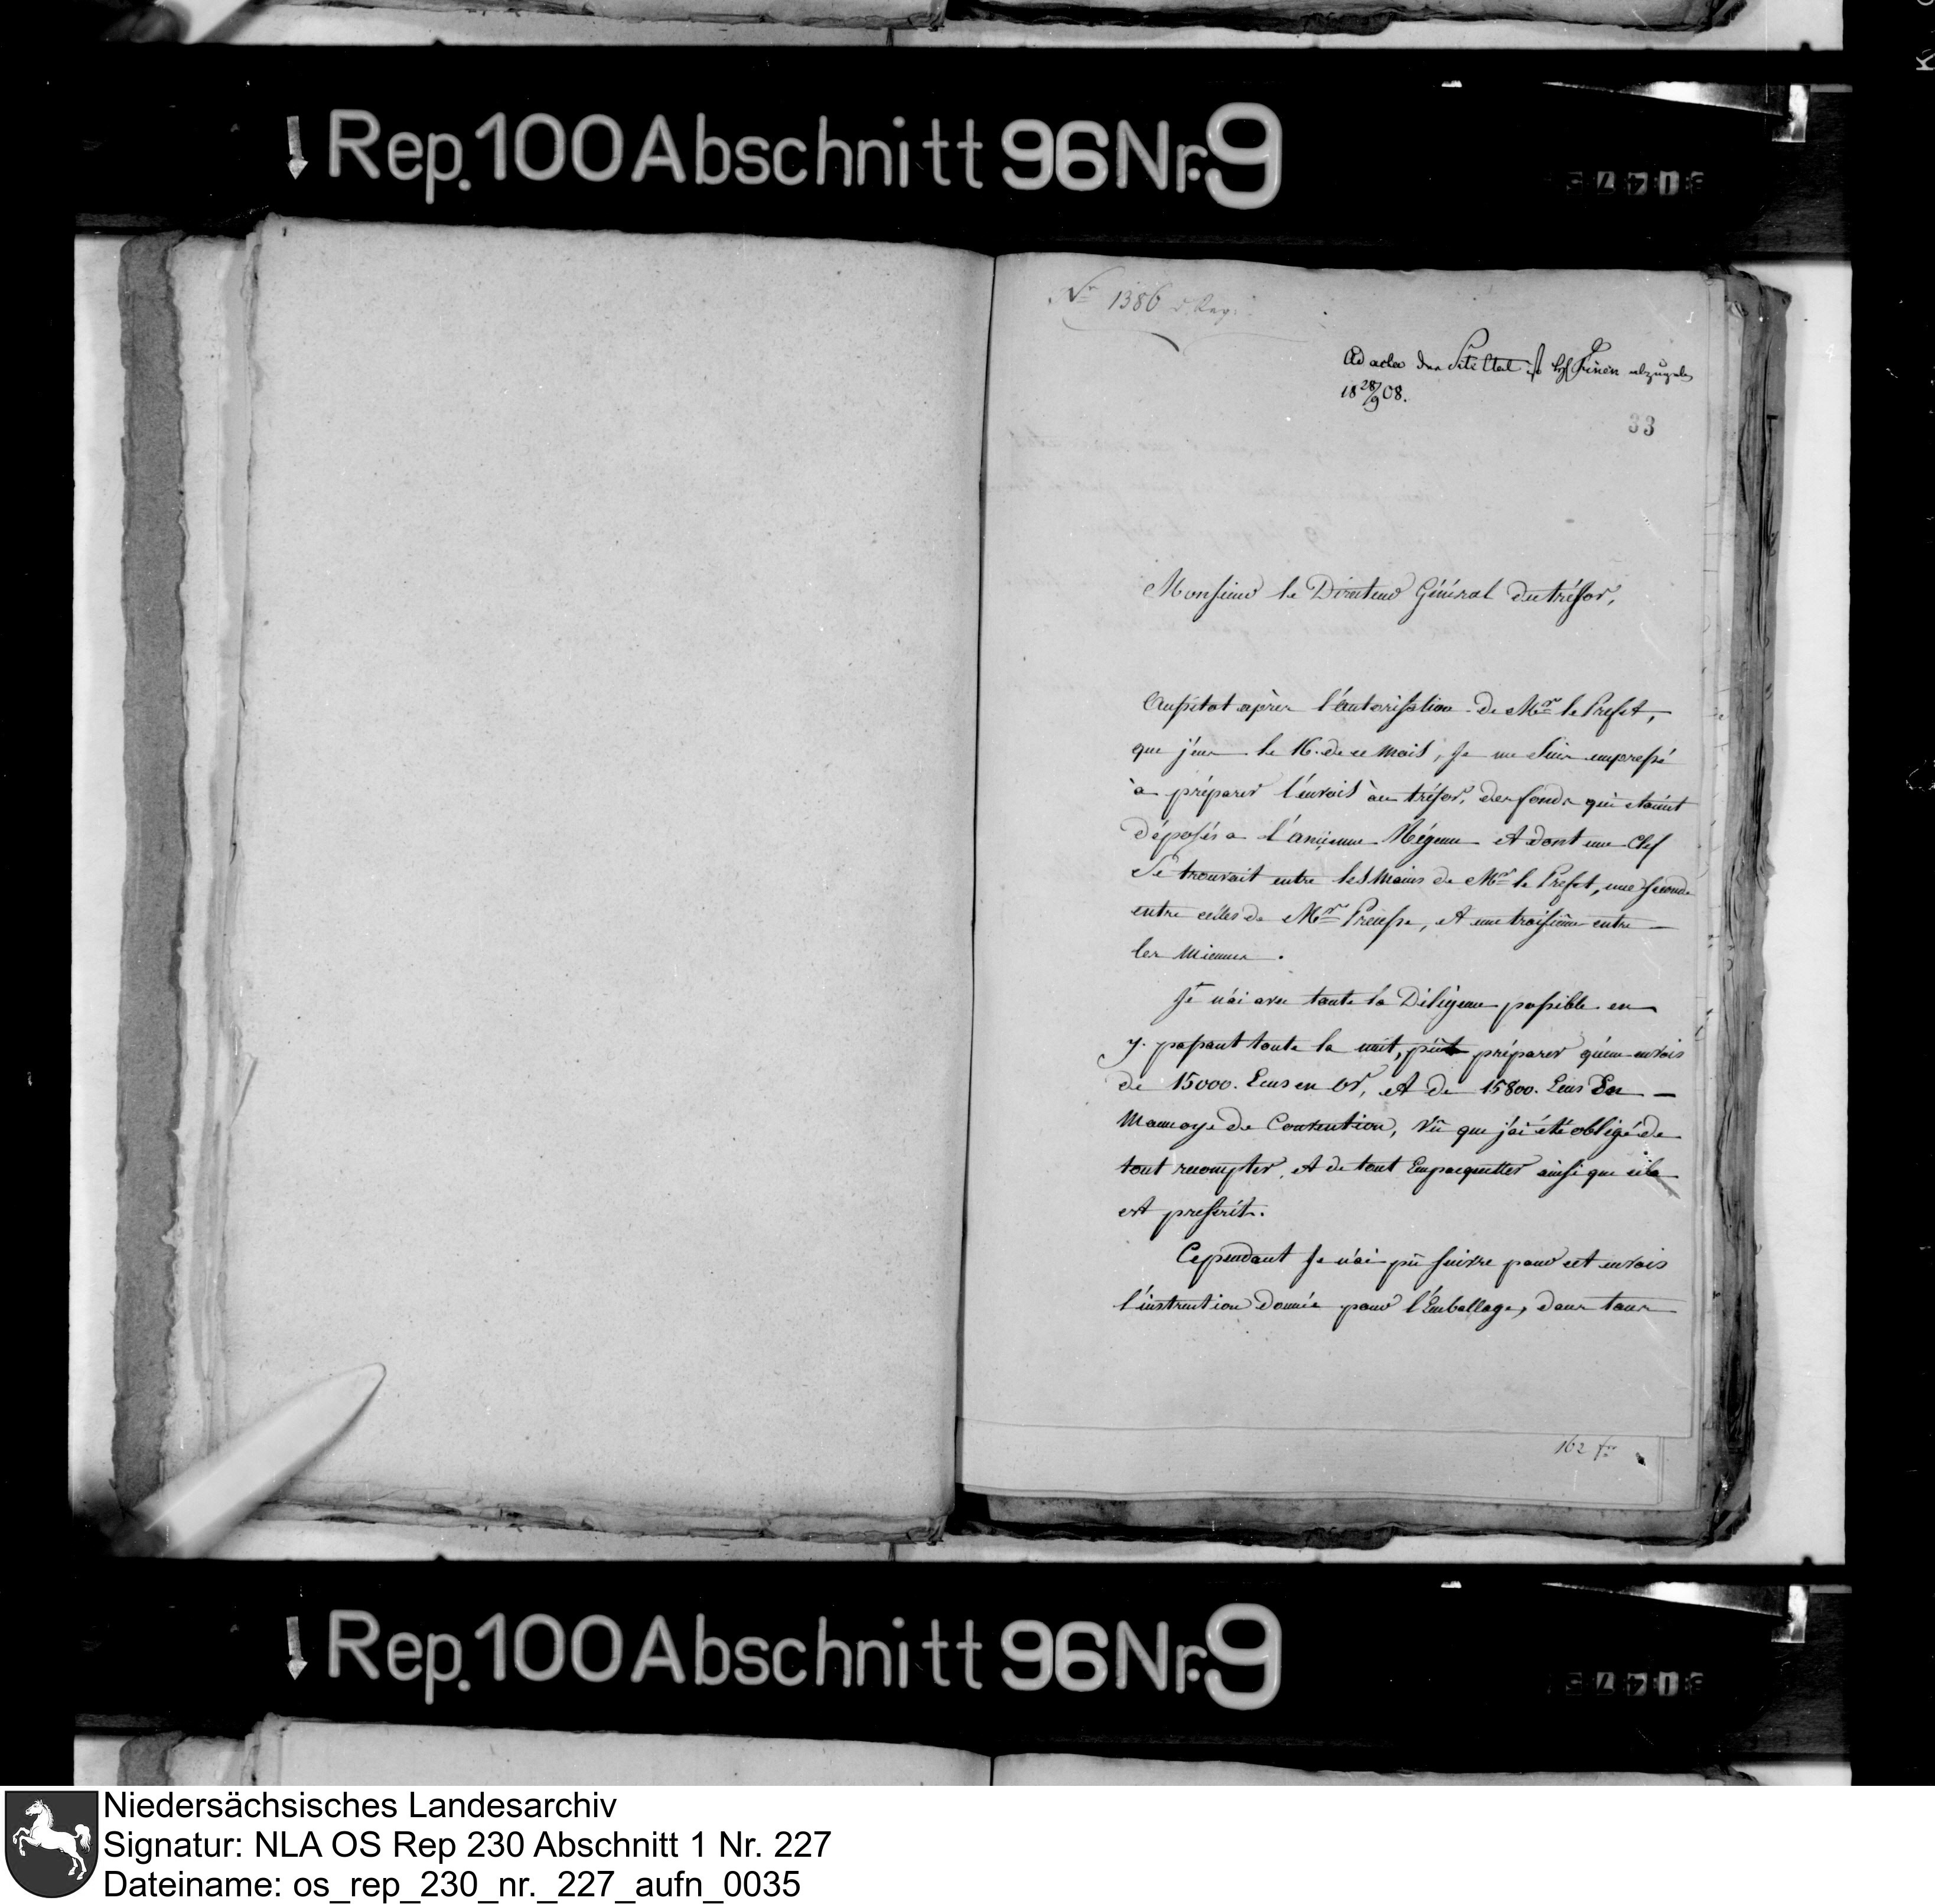 Rep. 100 Abschnitt 96 Nr. 9
Nr 1386
Ad acta
18 28/9 08.
33
Monsieur le Directeur Général du trésor,
Aussitot après l'autorisation de Mr. le Prefet,
que j'eus le 16. de ce mois, Je me suis empressé
à preparer l'envois àu trésor, des fonds qui etaint
déposés a l'ancienne Régence et dont une Clef
Se trouvait entre les mains de Mr. le Prefet, une seconde
entre celles de Mr. Preusse, et une troisième entre
les miennes.
Je n'ai avec toute la Diligence possible en
y. passant toute la nuit, pût préparer qu'un envois
de 15000. Ecus en Or, et de 15800. Ecus En
Monnoye de Convention, Vû que j'ai été obligé de
tout recompter, et de tout Empacquetter ainsi que cela
est prescrit.
Cependant Je n'ai pû suivre pour cet envois
l'instruction Donnée pour l'Emballage, dans tous
162
Rep. 100 Abschnitt 96 Nr. 9
Niedersächsisches Landesarchiv
Signatur: NLA OS Rep 230 Abschnitt 1 Nr. 227
Dateiname: os_rep_230_nr._227_aufn_0035